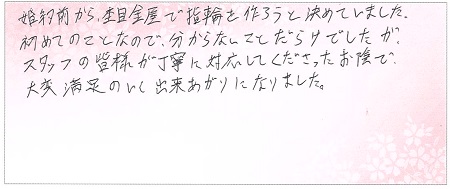 婚約前から、杢目金屋で指輪を作ろうと決めていました。
初めてのことなので、分からないことだらけでしたが、
スタッフの皆様が丁寧に対応してくださったお陰で、
大変満足のいく出来あがりになりました。